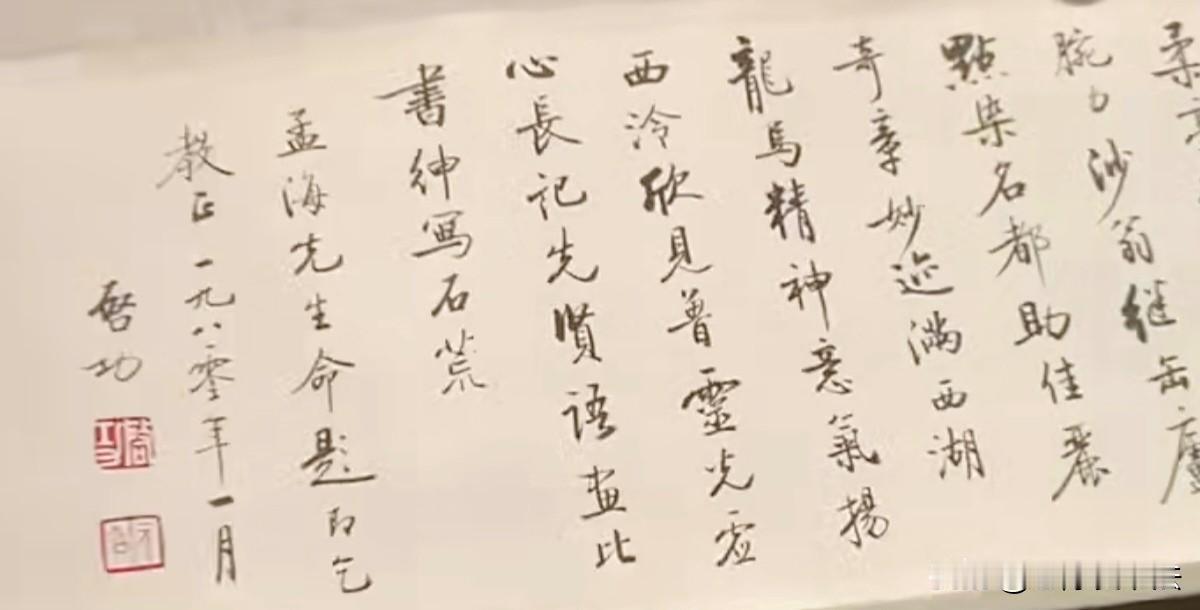 柔
腕力沙翁继缶廬
點染名都助佳麗
奇章妙迹满西湖
龍馬精神意氣揚
西泠欣見魯靈光虚
心長記先賢語畫比
書紳写石荒
孟海先生命題即乞
教正一九八零年一月
啓功